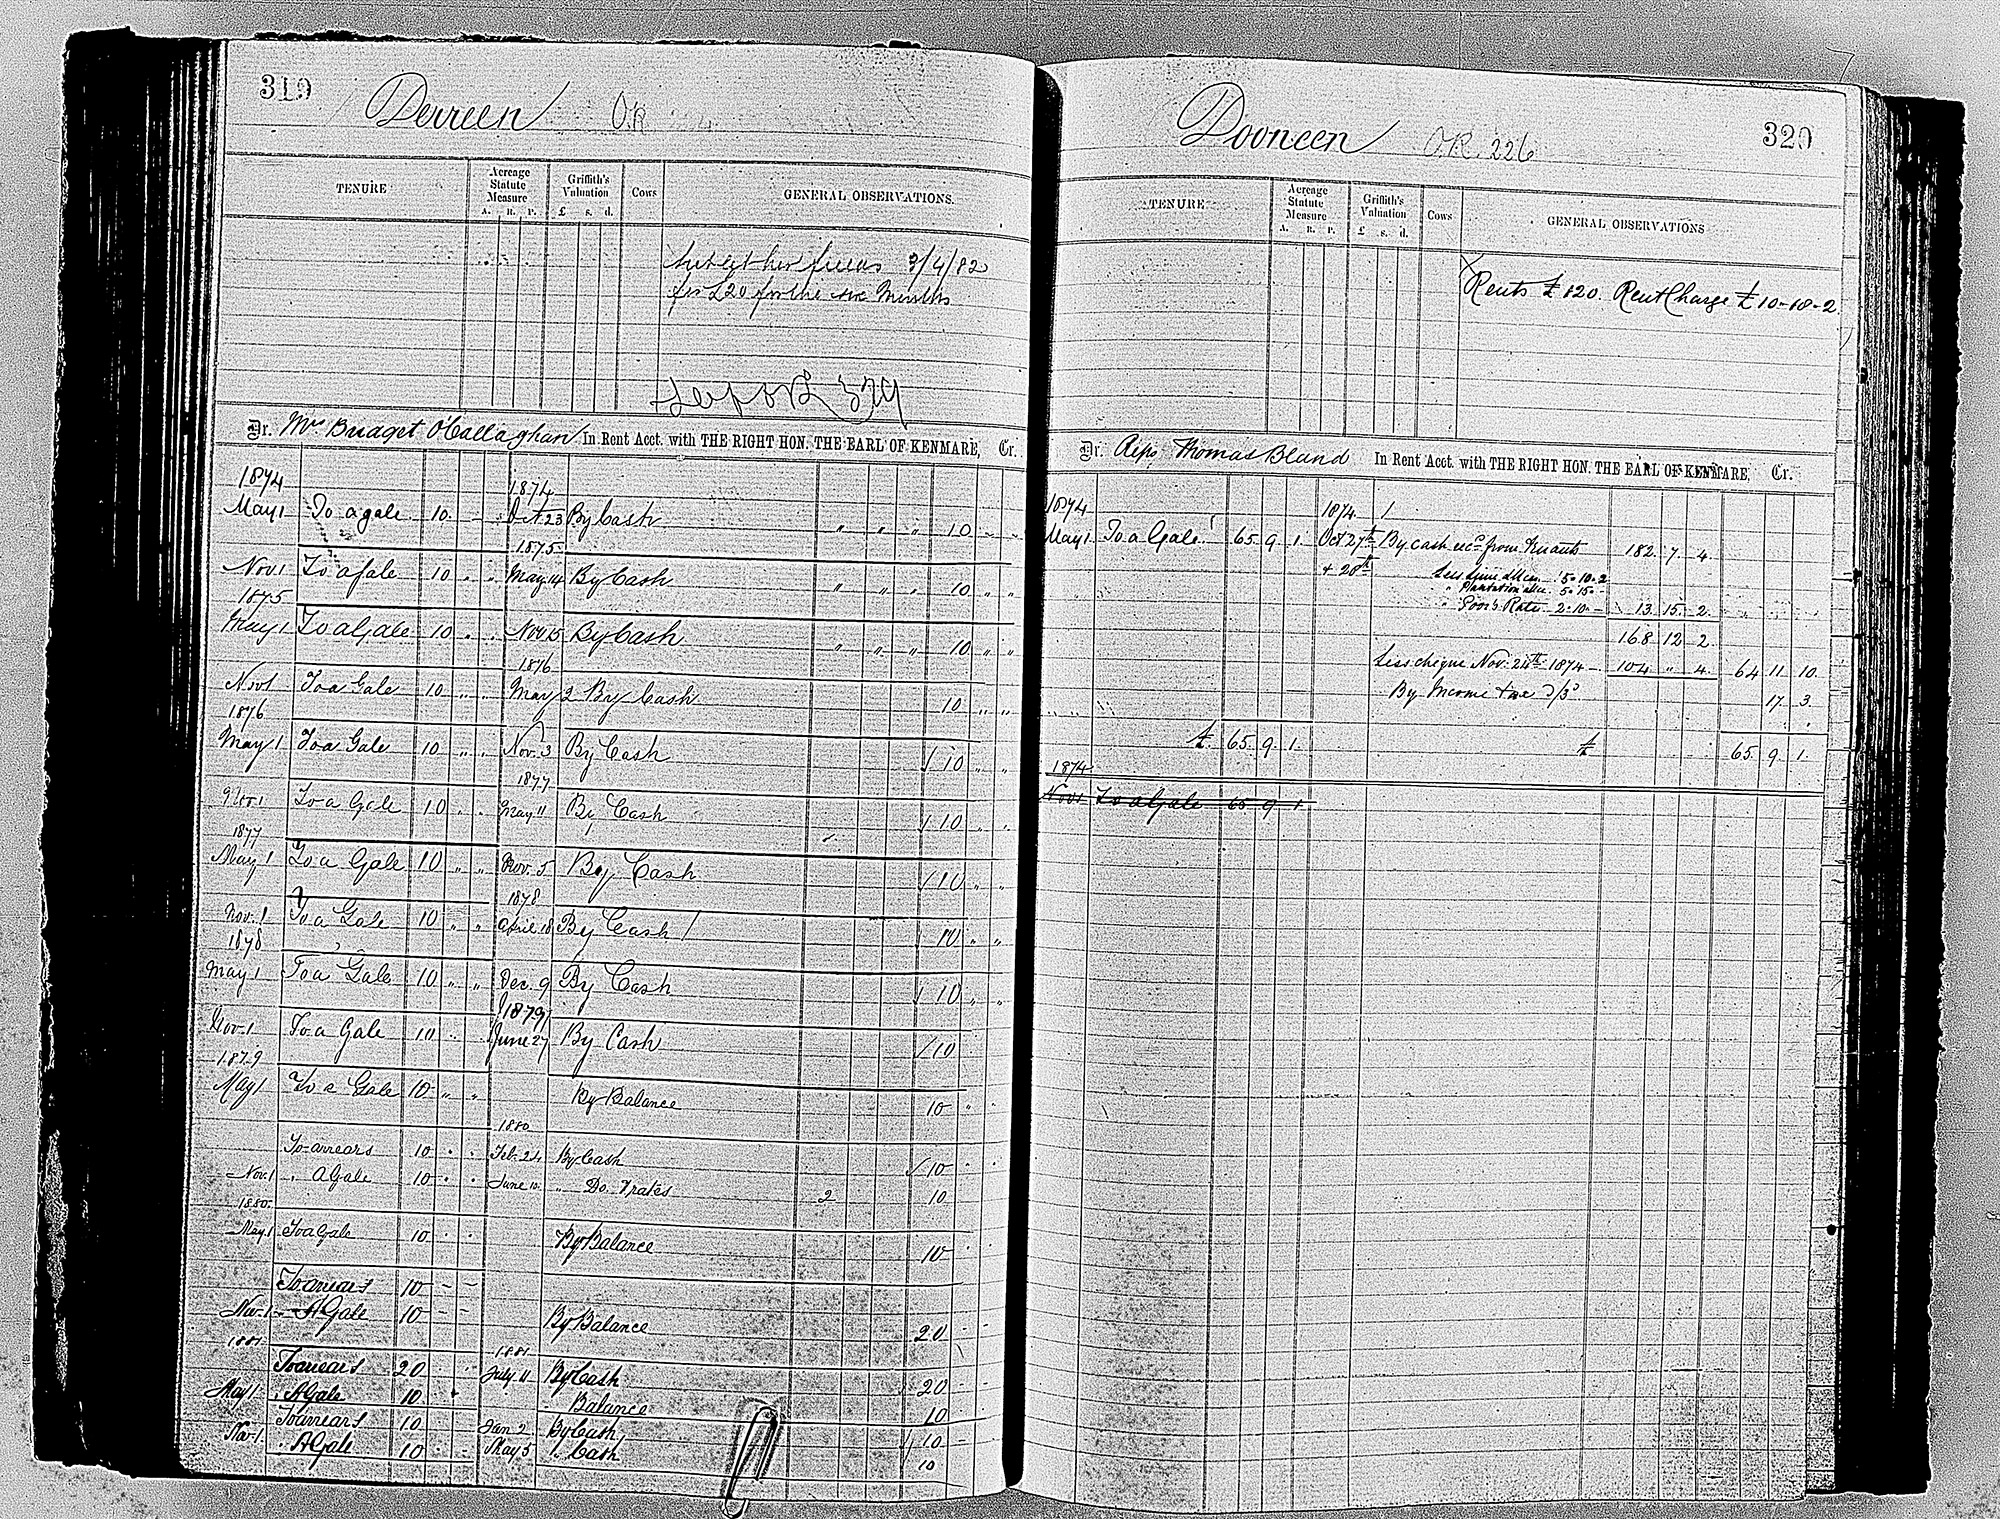 319
Derreen O.R.
TENURE
Acreage Statute Measure
A. R. P.
Griffith's Valuation
£ s. d.
Cows
GENERAL OBSERVATIONS.
3/4/82
for £20 for the six Months
Dr. Mrs Bridget O'Callaghan In Rent Acct. with THE RIGHT HON. THE EARL OF KENMARE, Cr.
1874 1874
May 1 To a gale 10 - Oct 23 By Cash " " " 10 " "
1875
Nov 1 To a Gale 10 " " May 14 By Cash " " " 10 " "
1875
May 1 To a Gale 10 " " Nov 15 By Cash " " " 10 " "
1876
Nov 1 To a Gale 10 " " May 2 By Cash 10 " "
1876
May 1 To a Gale 10 " " Nov. 3 By Cash 10 " "
1877
Nov 1 To a Gale 10 " " May 11 By Cash 10 " "
1877
May 1 To a Gale 10 " " Nov. 5 By Cash 10 " "
1878
Nov. 1 To a Gale 10 " " April 18 By Cash 10 " "
1878
May 1 To a Gale 10 " " Dec. 9 By Cash 10 " "
1879
Nov. 1 To a Gale 10 " " June 27 By Cash 10
1879
May 1 To a Gale 10 " " By Balance 10 " "
1880
To arrears 10 " " Feb. 24 By Cash 10 " "
Nov. 1 " A Gale 10 " " June 10 " Do. 2 10
1880
May 1 To a Gale 10 " " By Balance 10 "
To arrears 10 - -
Nov. 1 - A Gale 10 - - By Balance 20 - -
1881 1881
To arrears 20 " " July 11 By Cash 20 - -
May 1 " A Gale 10 " Balance 10
To arrears 10 Jan 2 By Cash 10 -
Nov. 1. " A Gale 10 - - May 5 " Cash 10
320
Dooneen O.R. 226
TENURE
Acreage Statute Measure
A. R. P.
Griffith's Valuation
£ s. d.
Cows
GENERAL OBSERVATIONS
Rents £120. Rent Charge £10-18-2
Dr. Reps Thomas Bland In Rent Acct. with THE RIGHT HON. THE EARL OF KENMARE, Cr.
1874 1874
May 1 To a Gale 65 9 1 Oct 27th By Cash recd from Tenants 182 7 4
+ 28th Less 5-10-2
" Plantation 5-15-
" Poor's Rate 2-10- 13 15 2
168 12 2
Less cheque Nov. 24th 1874 - 104 " 4 64 11 10
By Income tax 17 3
£ 65 9 1 £ 65 9 1
1874
Nov 1 To a Gale 65 9 1